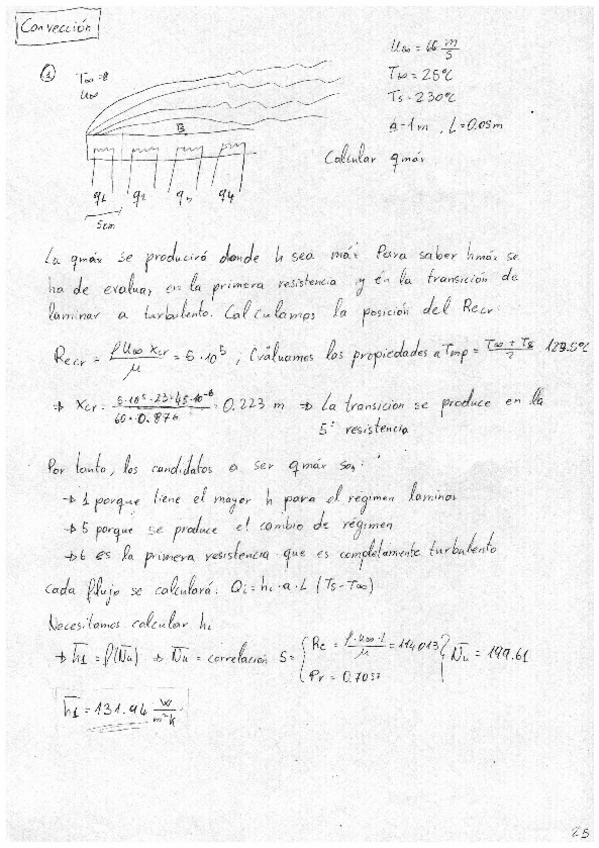 Convección
1
T∞ = 
U∞
B
q1 q2 q3 q4
5cm
U∞ = 66 m/s
T∞ = 25ºC
Ts = 230ºC
a = 1m, L = 0.05m
Calcular qmáx
La qmáx se producirá donde h sea máx. Para saber hmáx se
ha de evaluar en la primera resistencia y en la transición de
laminar a turbulento. Calculamos la posición del Recr:
Recr = ρ U∞ Xcr / μ = 5·10^5, Evaluamos las propiedades a Tmp = T∞ + Ts / 2
⇒ Xcr = = 0.223 m ⇒ La transición se produce en la
5ª resistencia
Por tanto, los candidatos a ser qmáx son:
→ 1 porque tiene el mayor h para el régimen laminar
→ 5 porque se produce el cambio de régimen
→ 6 es la primera resistencia que es completamente turbulento
cada flujo se calculará: Qi = hi·a·L (Ts - T∞)
Necesitamos calcular hi
→ h̄1 = f(N̄u) ⇒ N̄u = correlación 5 = { Re = ρ·u∞·L / μ = 114013 } N̄u = 199.61
Pr =
h̄1 = 131.94 W/m²K
25